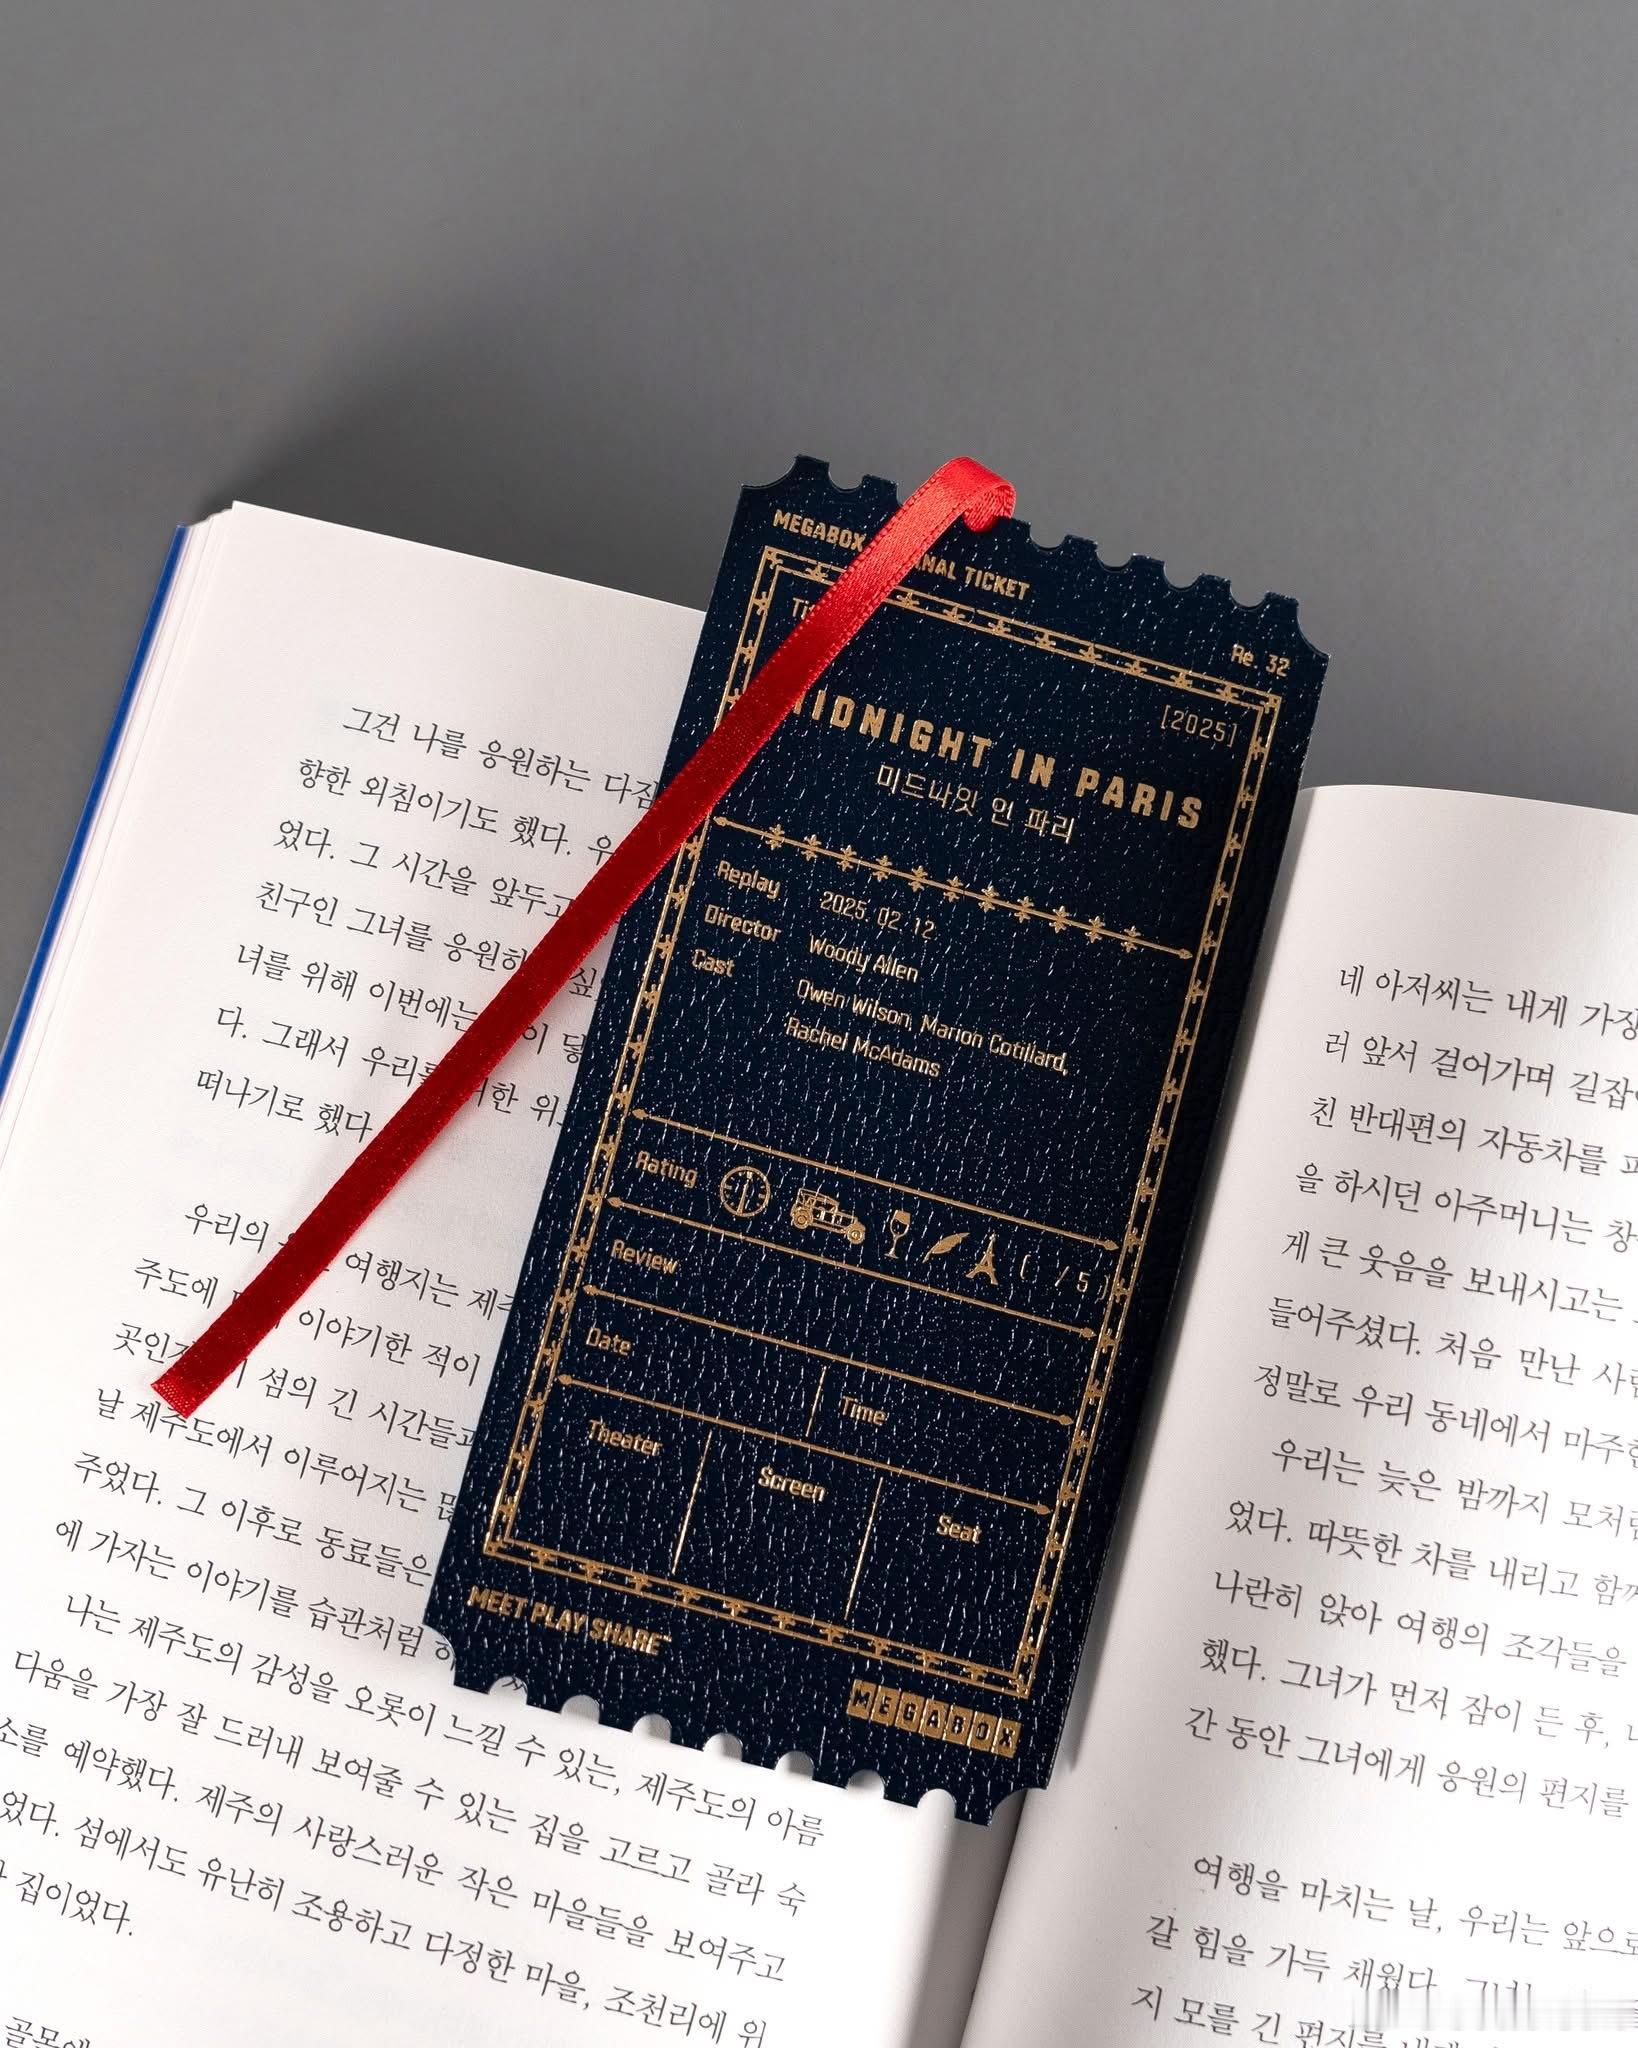 그건 나를 응원하는 다짐
향한 외침이기도 했다.
었다. 그 시간을 앞두고
친구인 그녀를 응원하
녀를 위해 이번에는
다. 그래서 우리를
떠나기로 했다
우리의 여행지는
주도에 이야기한 적이
섬의 긴 시간들과
날 제주도에서 이루어지는
주었다. 그 이후로 동료들은
에 가자는 이야기를 습관처럼
나는 제주도의 감성을 오롯이 느낄 수 있는, 제주도의 아름
다움을 가장 잘 드러내 보여줄 수 있는 집을 고르고 골라 숙
소를 예약했다. 제주의 사랑스러운 작은 마을들을 보여주고
었다. 섬에서도 유난히 조용하고 다정한 마을, 조천리에 위
집이었다.
MEGABOX TICKET
Re. 32
[2025]
MIDNIGHT IN PARIS
미드나잇 인 파리
Replay 2025. 02. 12
Director Woody Allen
Cast Owen Wilson, Marion Cotillard,
Rachel McAdams
Rating ( / 5 )
Review
Date Time
Theater Screen Seat
MEET PLAY SHARE
MEGABOX
네 아저씨는 내게 가장
러 앞서 걸어가며 길잡
친 반대편의 자동차를
을 하시던 아주머니는
게 큰 웃음을 보내시고는
들어주셨다. 처음 만난
정말로 우리 동네에서
우리는 늦은 밤까지
었다. 따뜻한 차를 내리고
나란히 앉아 여행의 조각들을
했다. 그녀가 먼저 잠이 든 후,
간 동안 그녀에게 응원의 편지를
여행을 마치는 날, 우리는 앞으로
갈 힘을 가득 채웠다.
지 모를 긴 편지를